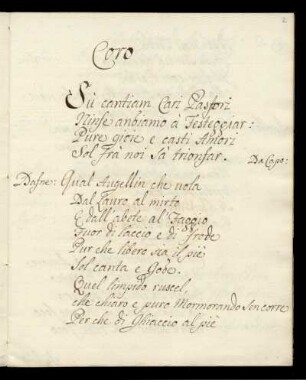 Coro
Sù cantiam Cari Pastori
Ninfe andiamo à festeggiar:
Pure gioie e casti Amori
Sol frà noi sà trionfar.
Da Capo:
Dafne: Qual Augellin che vola
Dal Lauro al mirto
E dall' abete al Faggio
Fuor di laccio e di frode
Pur che libero sia il piè
Sol canta e Gode.
Quel limpido ruscel,
che chiaro e puro Mormorando sen corre
Per che di Ghiaccio al piè